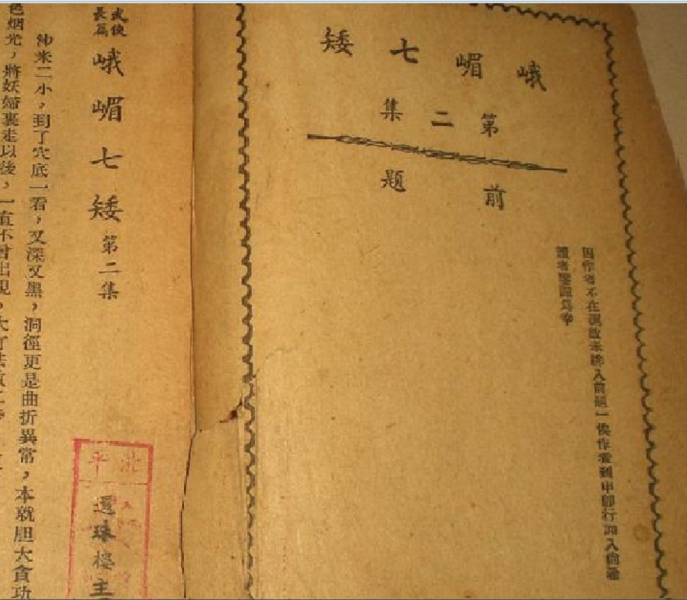 峨嵋七矮
第二集
前題
因作者不在滬故未排入前題一俟作者到申即行加入尚希
讀者鑒諒爲幸
武俠
長篇
峨嵋七矮 第二集
北平
還珠樓主
沙米二小，到了穴底一看，又深又黑，洞徑更是曲折異常，本就胆大貪功
色烟光，將妖婦裹走以後，一直不曾出現，